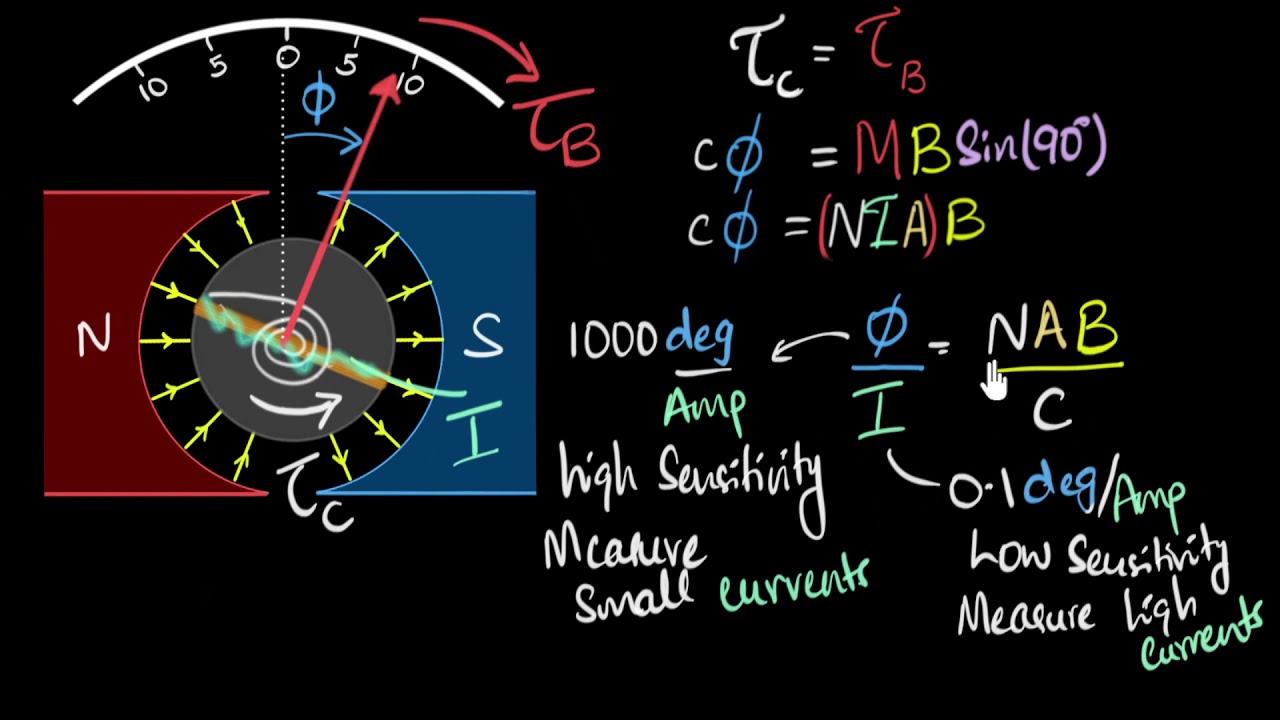 10 5 0 5 10
ϕ
τ_B
N
S
I
τ_c
τ_c = τ_B
cϕ = MB Sin(90°)
cϕ = (NIA)B
ϕ/I = NAB/C
1000 deg/Amp
high Sensitivity
Measure
Small currents
0.1 deg/Amp
Low Sensitivity
Measure high
currents